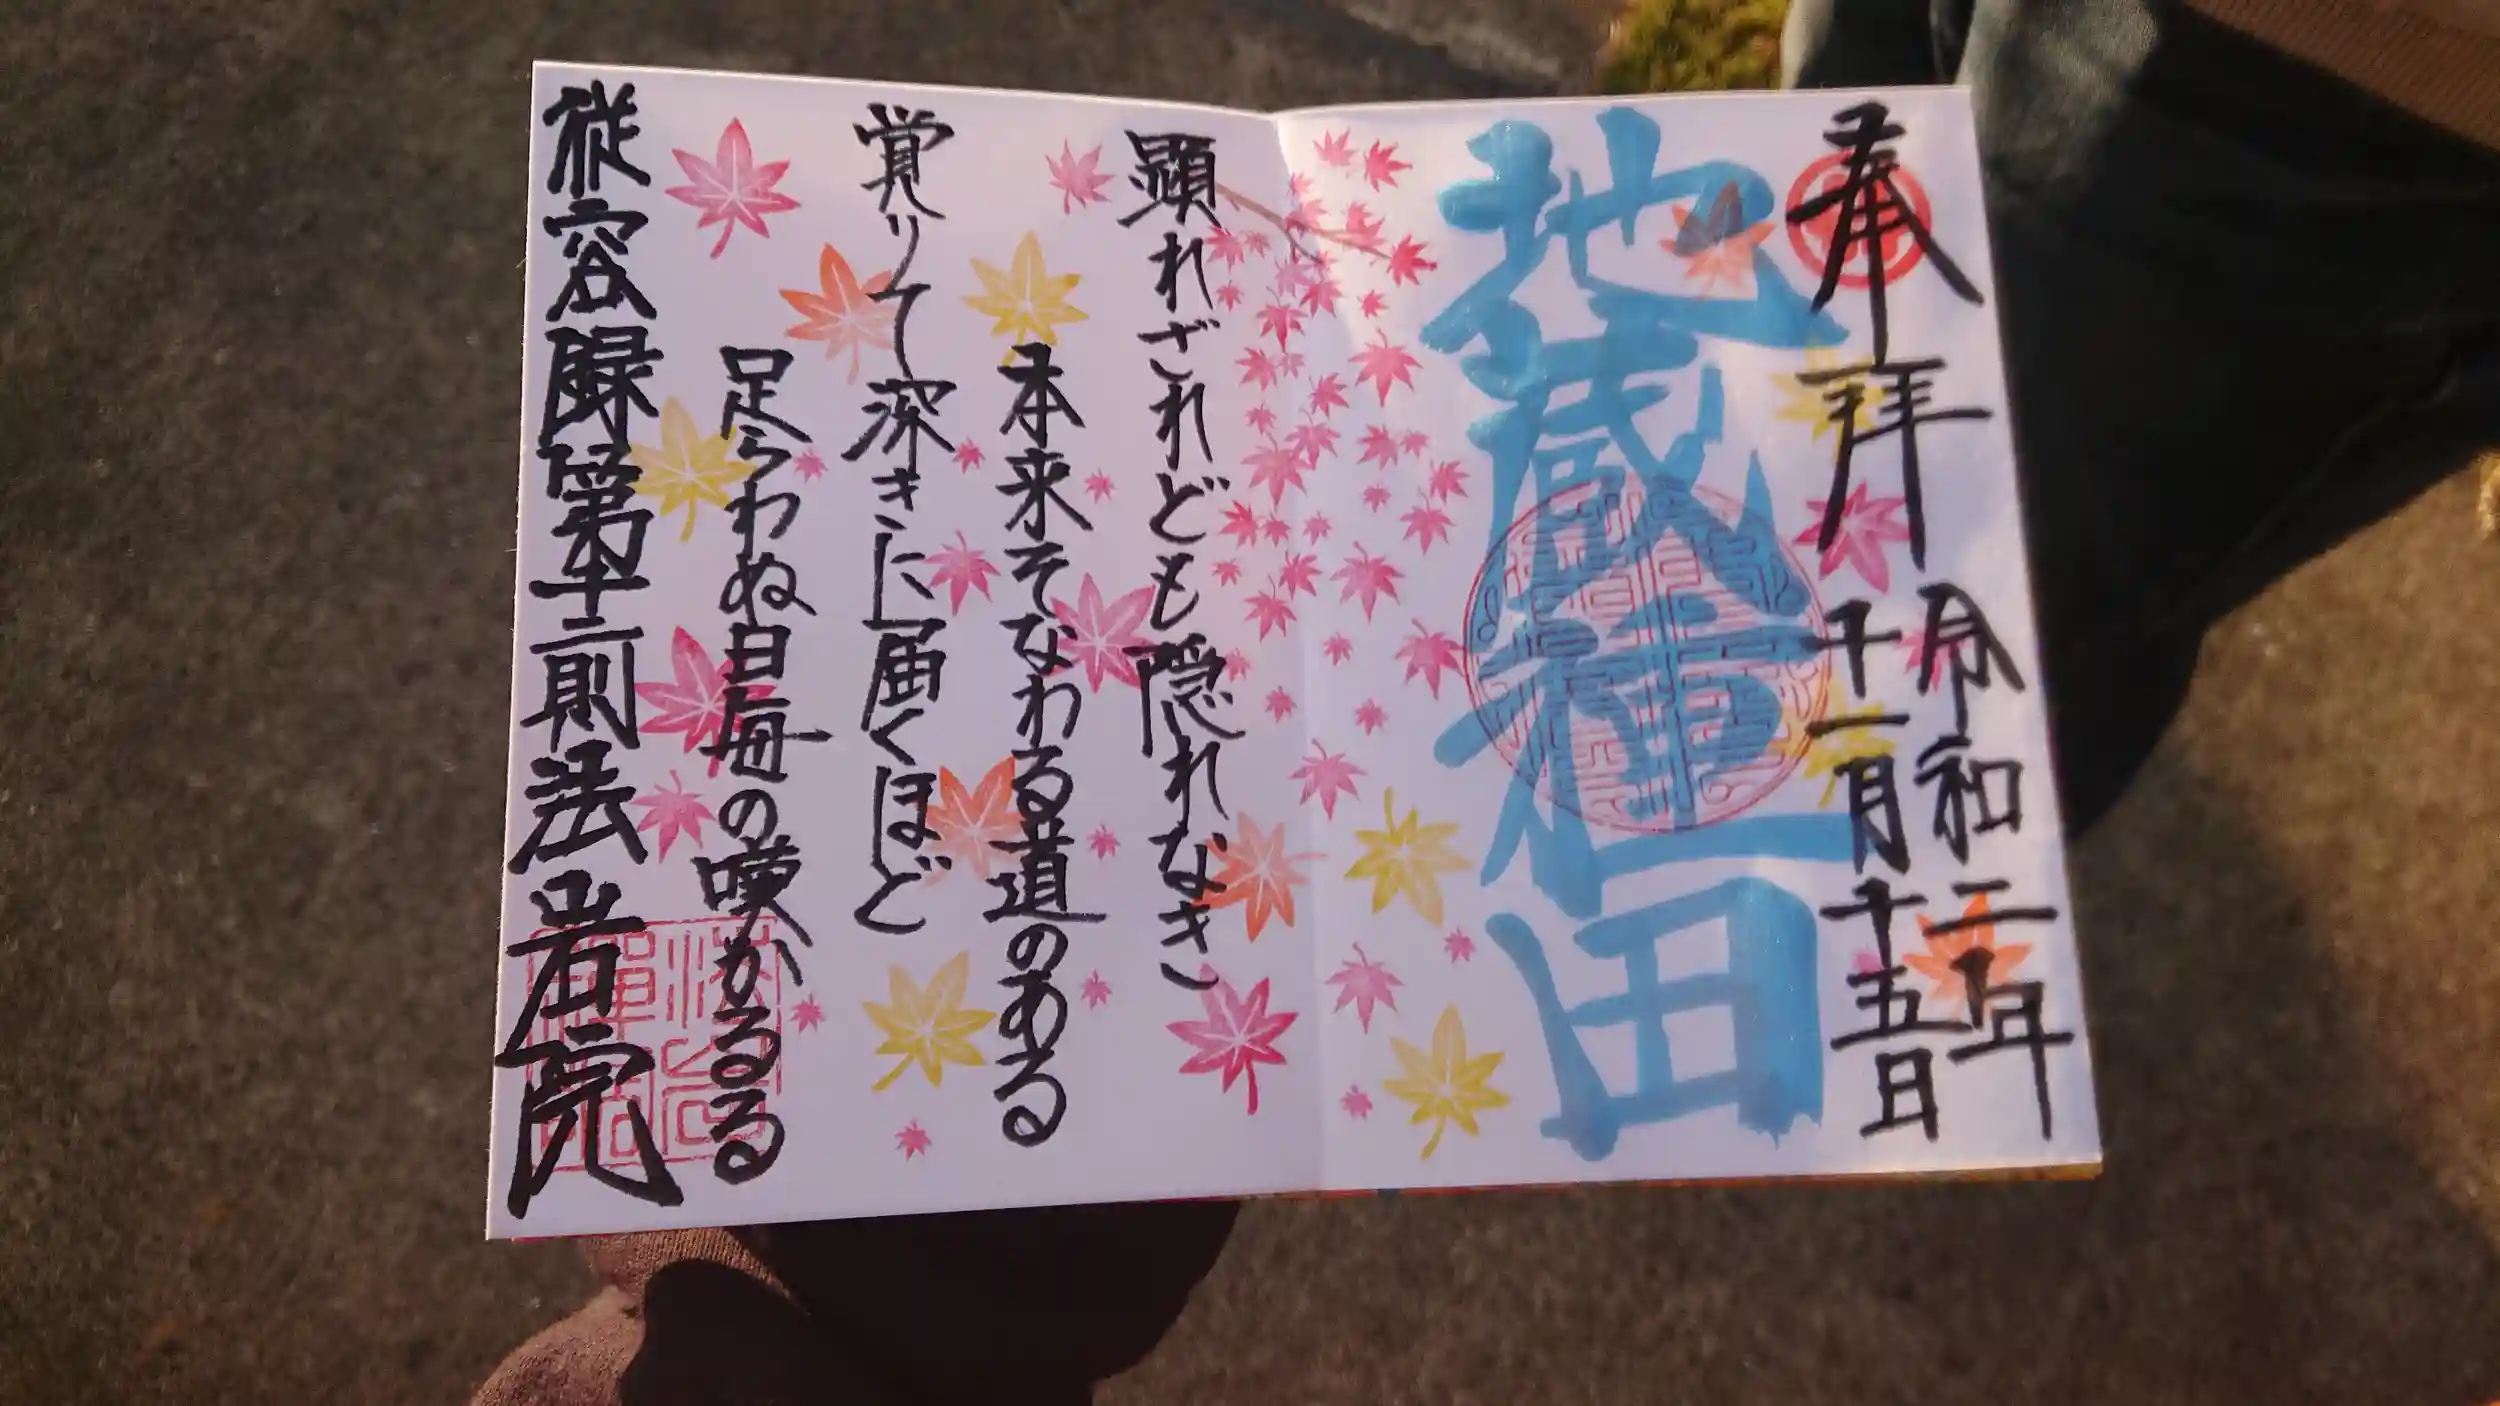 奉拝
令和二年
十一月十五日
地蔵種田
顕れざれども隠れなき
本来そなわる道のある
覚りて深きに届くほど
足らわぬ日毎の嘆かるる
従容録第十二則法岩院